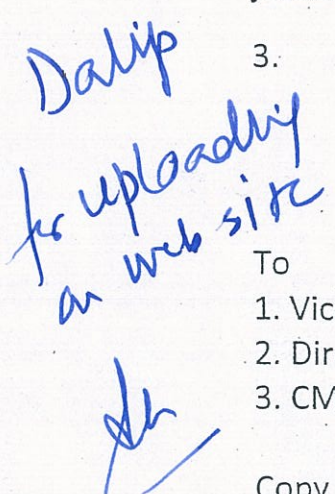 Dalip
for uploading
on web site
3.
To
1. Vic
2. Dir
3. CM
Copy